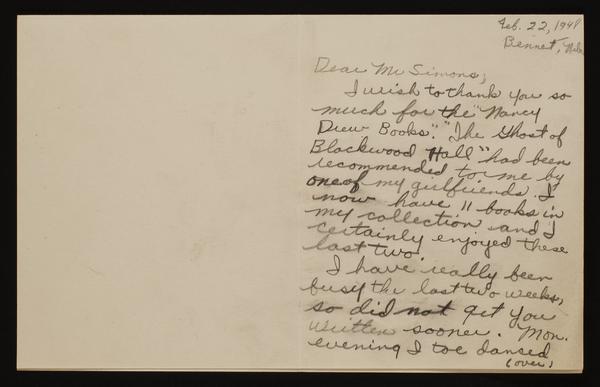 Feb. 22, 1949
Bennet, Nebr.
Dear Mr Simons,
I wish to thank you so
much for the "Nancy
Drew Books". "The Ghost of
Blackwood Hall" had been
recommended to me by
one of my girlfriends. I
now have 11 books in
my collection and I
certainly enjoyed these
last two.
I have really been
busy the last two weeks,
so did not get you
written sooner. Mon.
evening I toe danced
(over)